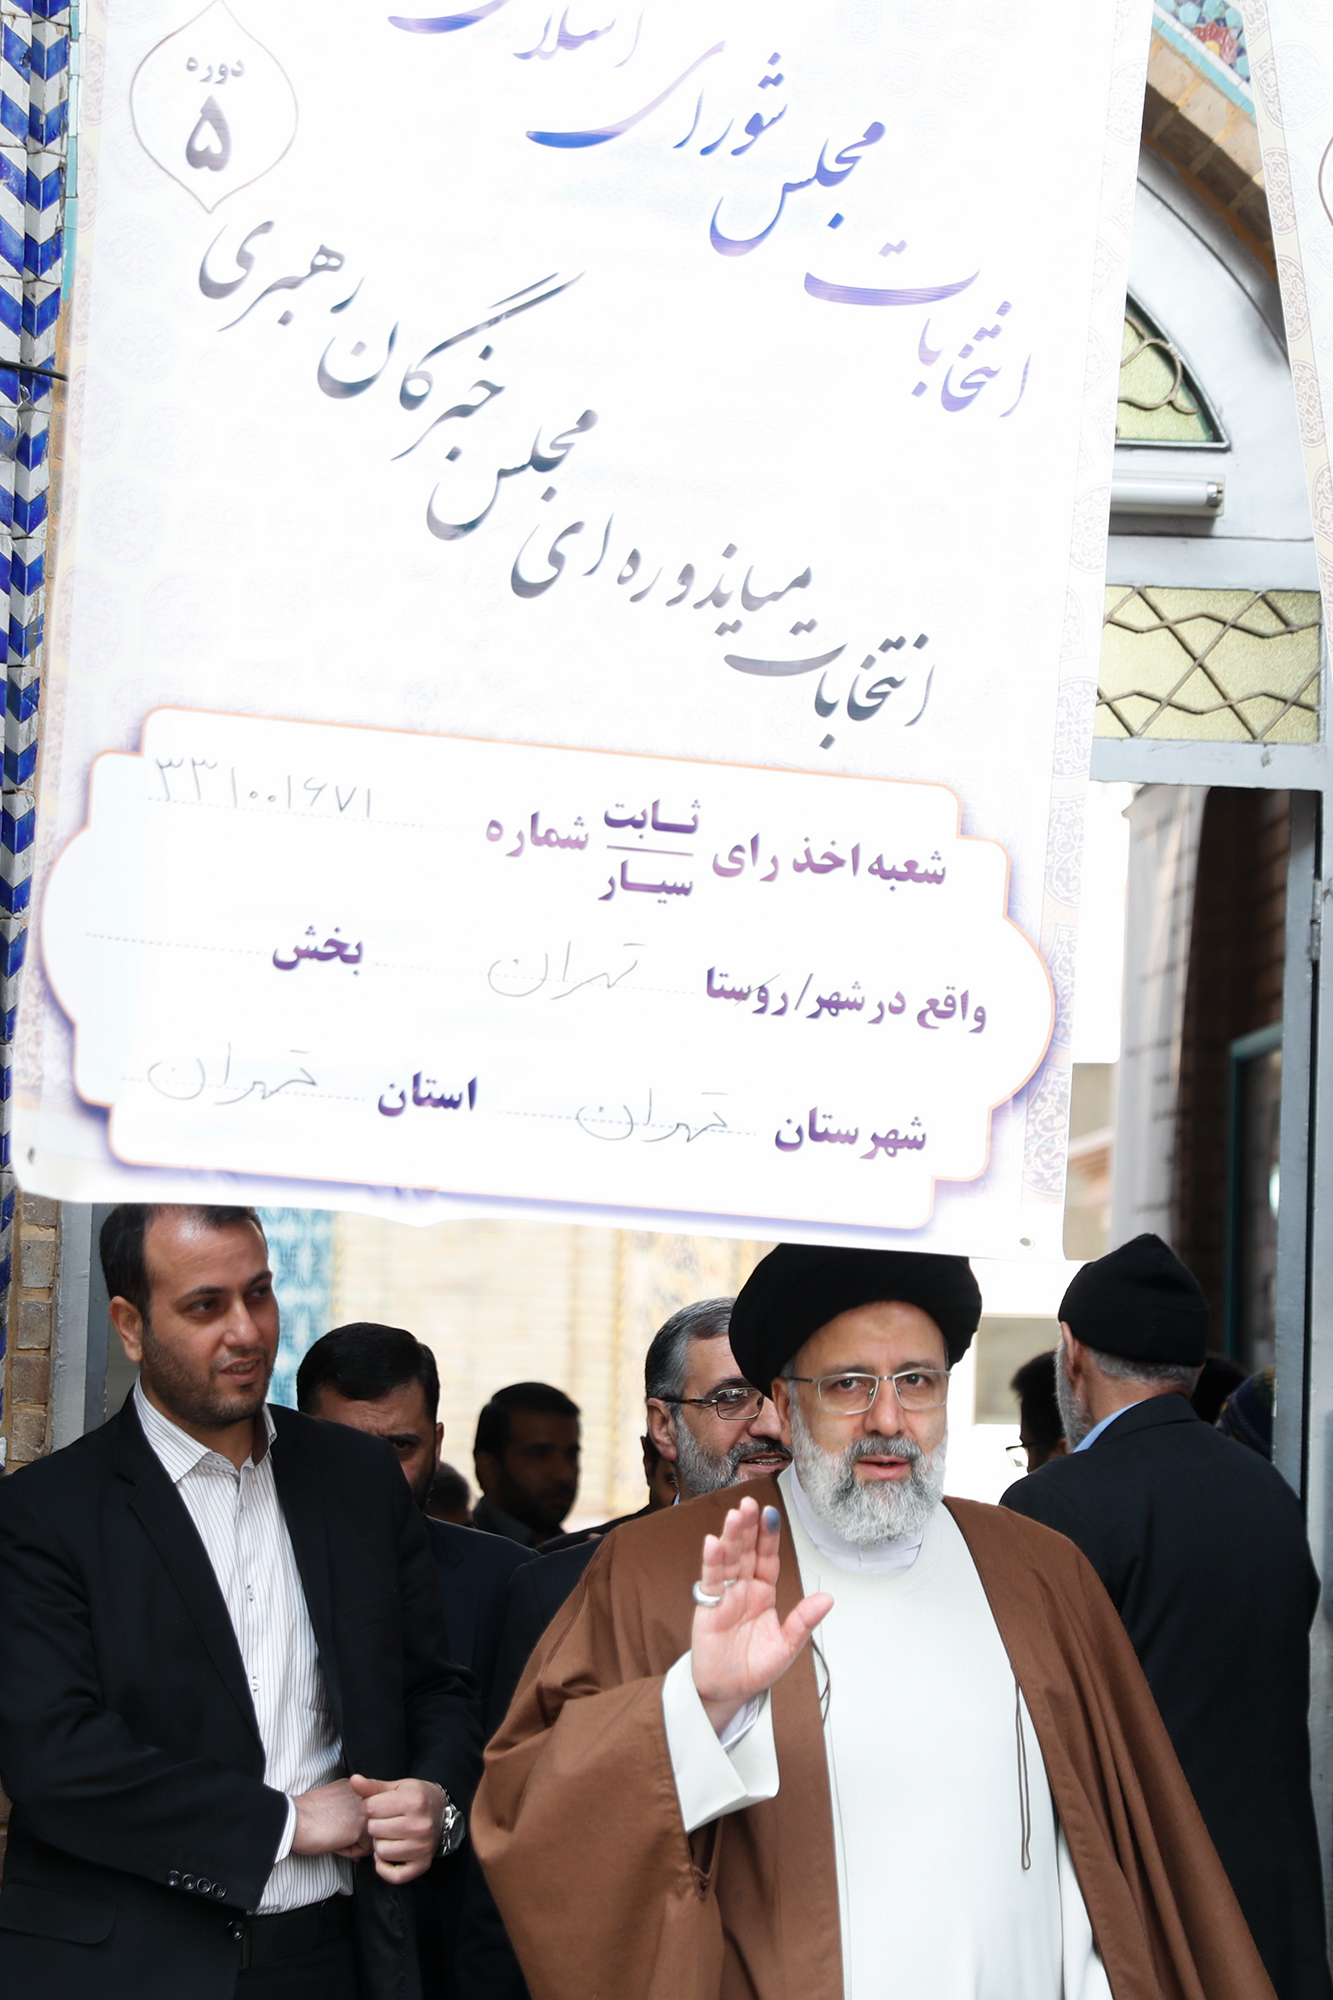 انتخابات مجلس شورای اسلامی
دوره
۵
انتخابات میاندوره ای مجلس خبرگان رهبری
شعبه اخذ رای ثابت / سیار شماره ۳۳۱۰۰۱۶۷۱
واقع در شهر/روستا تهران بخش
شهرستان تهران استان تهران